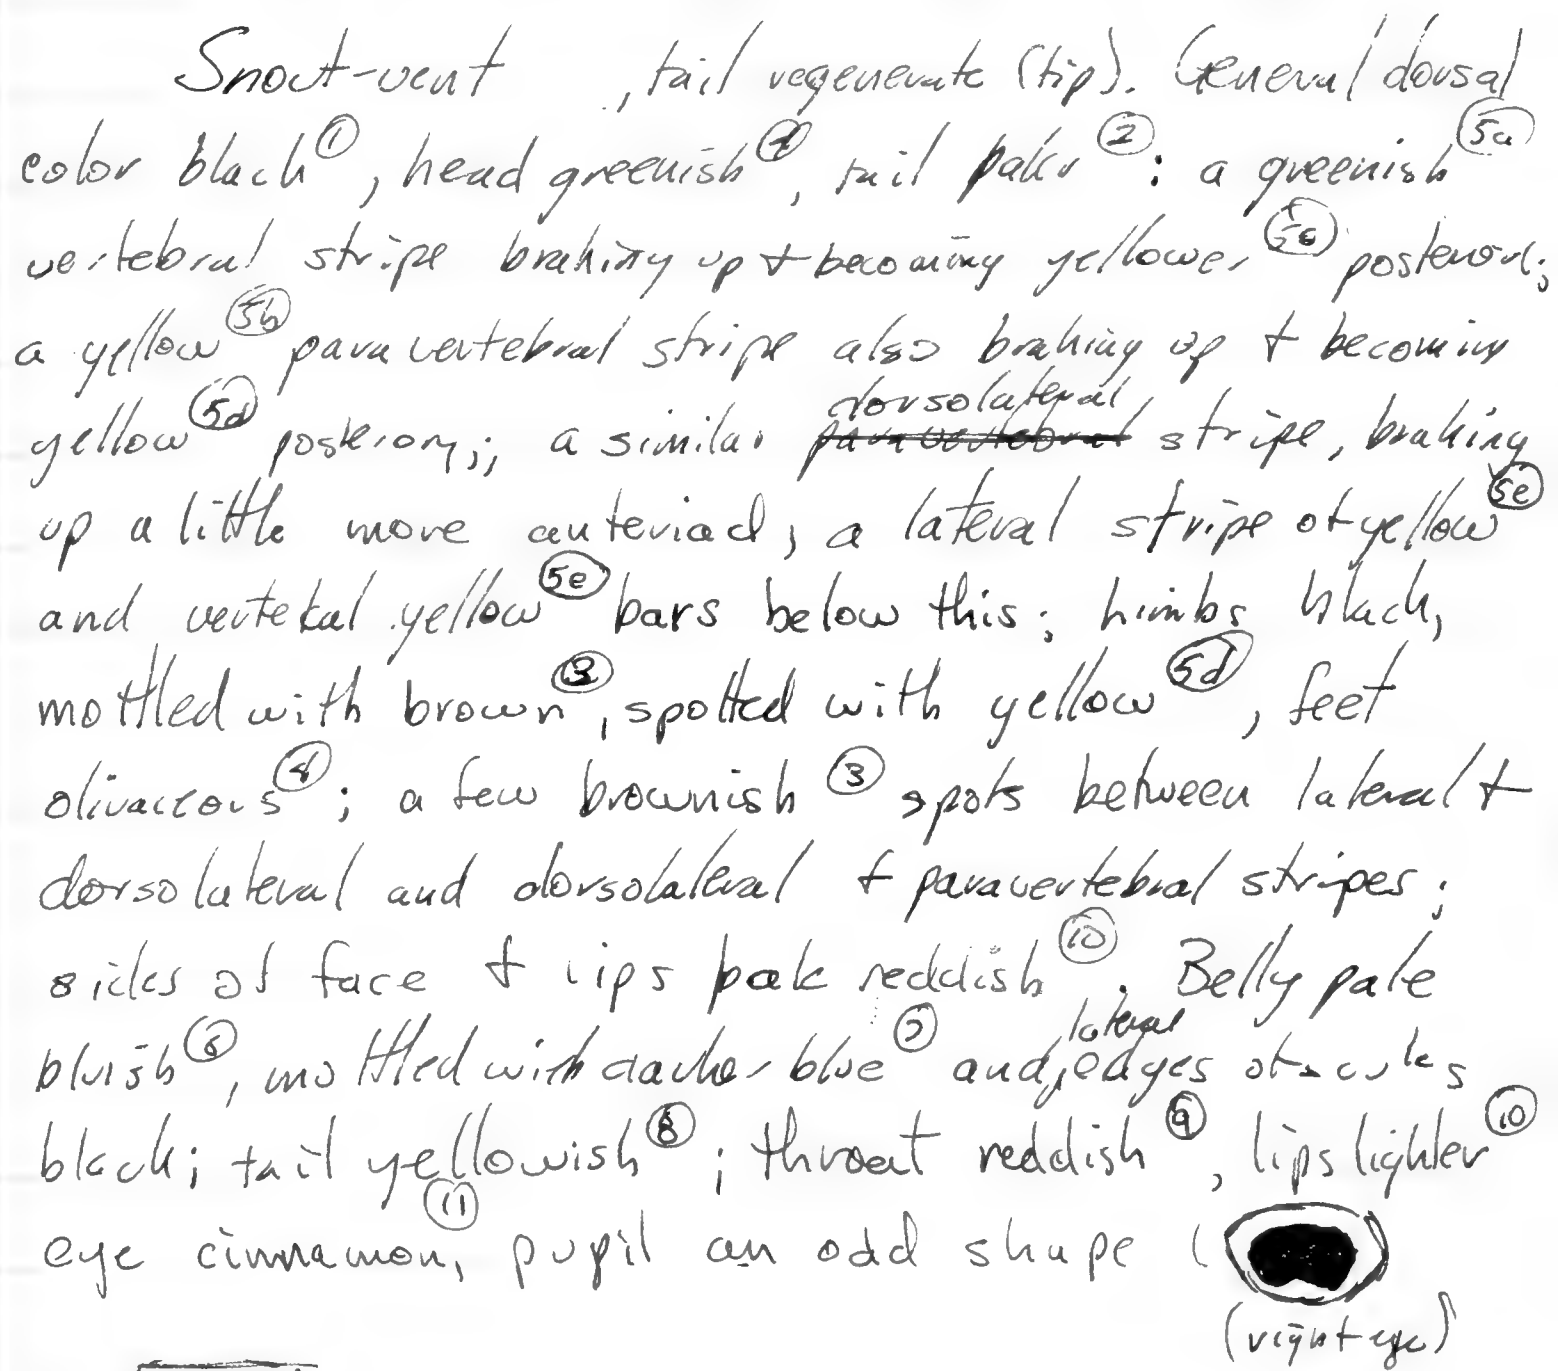 Snout-vent , tail regenerate (tip). General dorsal
color black ①, head greenish ④, tail paler ② : a greenish 5a
vertebral stripe braking up + becoming yellower 5c posteriorly;
a yellow 5b paravertebral stripe also braking up + becoming
dorsolateral
yellow 5d posteriorly;; a similar paravertebral stripe, braking
up a little more anteriad, a lateral stripe of yellow 5e
and vertekal yellow 5e bars below this; himbs black,
mottled with brown ③, spotted with yellow 5d, feet
olivaceous ④; a few brownish ③ spots between lateral +
dorsolateral and dorsolateral + paravertebral stripes;
sides of face + lips pale reddish ⑩. Belly pale
lateral
bluish ⑥, mottled with darker blue ⑦ and, edges of scutes
black; tail yellowish ⑧; throat reddish ⑨, lips lighter ⑩
eye cinnamon ⑪, pupil an odd shape (
(right eye)